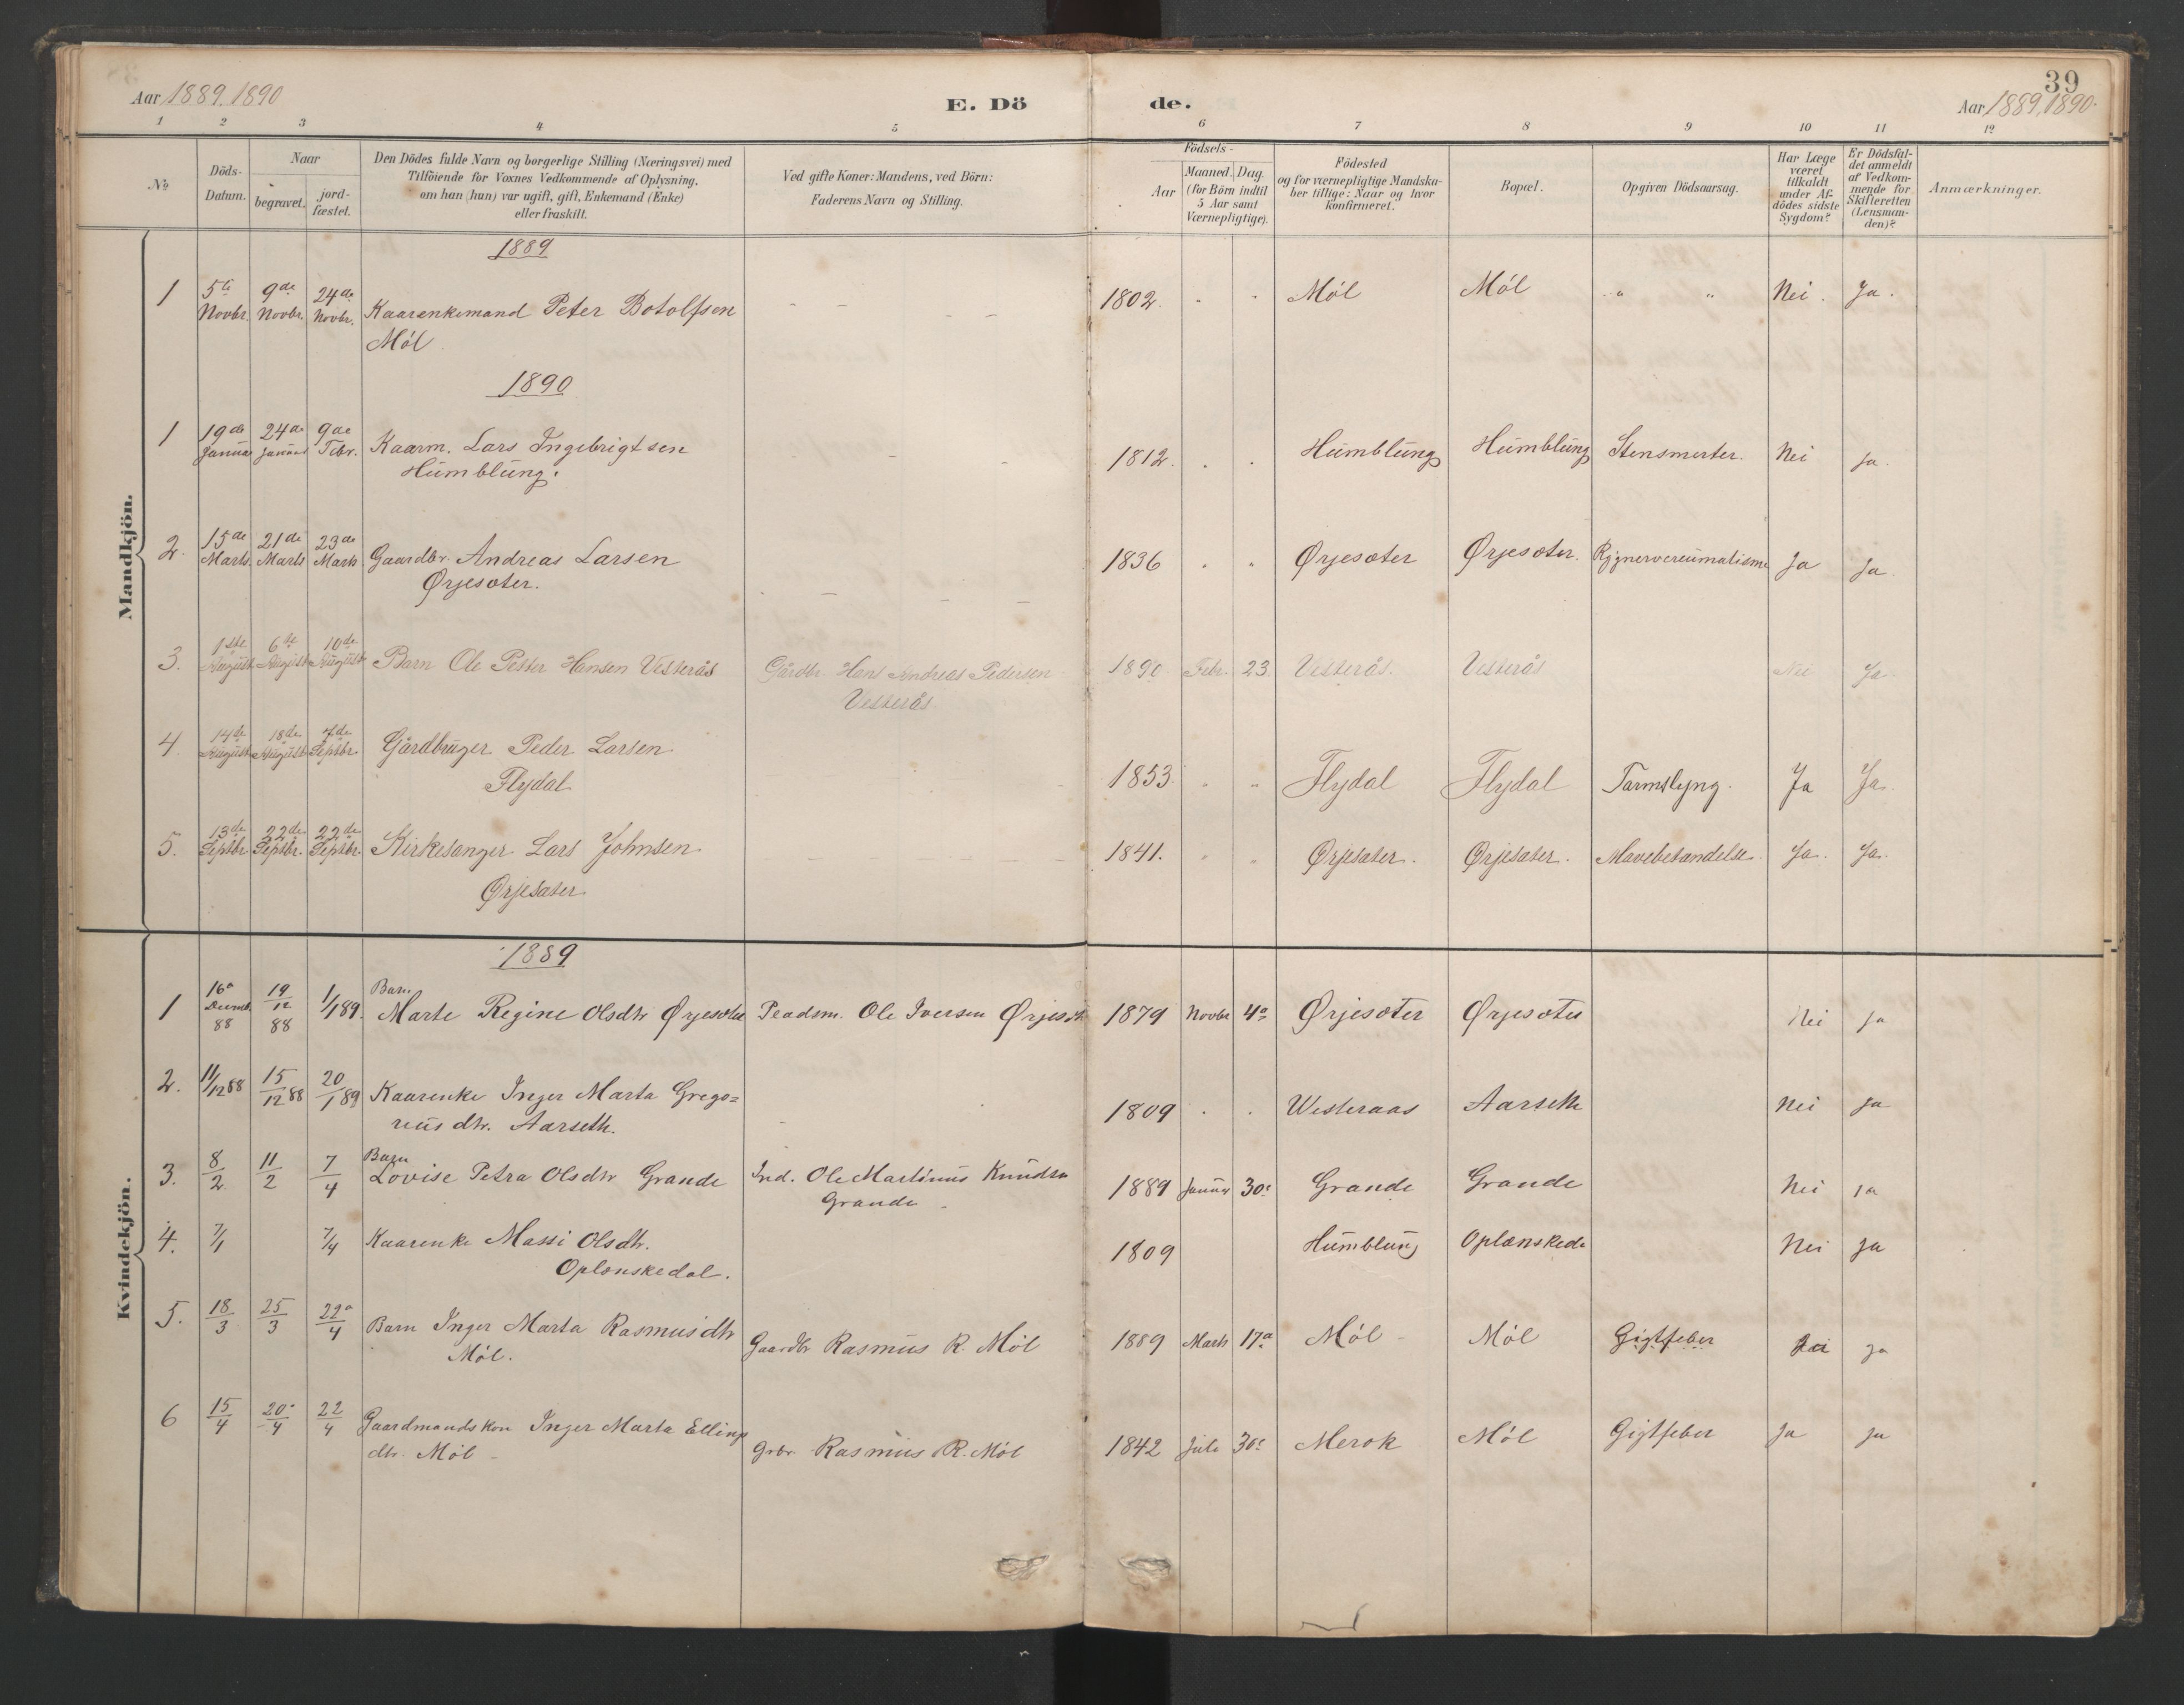 39
Aar 1889. 1890
E. Dö de.
Aar 1889, 1890.
1 2 3 4 5 6 7 8 9 10 11 12
No
Döds-
Datum.
Naar
begravet.
jord-
fæstet.
Den Dödes fulde Navn og borgerlige Stilling (Næringsvei) med
Tilföiende for Voxnes Vedkommende af Oplysning,
om han (hun) var ugift, gift, Enkemand (Enke)
eller fraskilt.
Ved gifte Koner: Mandens, ved Börn:
Faderens Navn og Stilling.
Födsels-
Aar
Maaned. Dag.
(for Börn indtil
5 Aar samt
Værnepligtige).
Födested
og for værnepligtige Mandska-
ber tillige: Naar og hvor
konfirmeret.
Bopæl.
Opgiven Dödsaarsag.
Har Læge
været
tilkaldt
under Af-
dödes sidste
Sygdom?
Er Dödsfal-
det anmeldt
af Vedkom-
mende for
Skifteretten
(Lensman-
den)?
Anmærkninger.
Mandkjön.
1889
1 5te Novbr. 9de Novbr. 24de Novbr. Kaarenkemand Peter Botolfsen - - - - 1802. " " Möl Möl " " Nei. Ja.
Möl
1890
1 19de Januar 24de Januar 9de Febr. Kaarm. Lars Ingebrigtsen - - - - 1812. . . Humblung Humblung Stensmerter. Nei Ja.
Humblung.
2. 15de Marts. 21de Marts 23de Marts Gaardbr. Andreas Larsen 1836 " " Ørjesæter Ørjesæter. Ja Ja.
Ørjesæter. - - -
3. 1ste August 6te August 10de August Barn Ole Petter Hansen Vesterås Gårdbr. Hans Andreas Pedersen 1890. Febr. 23. Vesterås. Vesterås Nei Ja.
Vesterås
4. 14de August 18de August 7de Septbr. Gårdbruger Peder Larsen 1853. " " Flydal Flydal Tarmslyng. Ja Ja.
Flydal
5. 13de Septbr 22de Septbr. 22de Septbr. Kirkesanger Lars Johnsen 1841. " " Ørjesæter. Ørjesæter. Mavebetændelse. Ja. Ja.
Ørjesæter
Kvindekjön.
1889
1 16de Decemb. 88 19/12 88 1/1 89. Barn
Marte Regine Olsdtr Ørjesæter Ole Iversen 1879 Novbr 4de Ørjesæter Ørjesæter Nei Ja
2. 11/12 88 15/12 88 20/1 89 Kaarenke Inger Marta Grego= 1809 . . Westeraas Aarseth Nei Ja
riusdtr. Aarseth. -
3. 8/2 11/2 7/4 Barn
Lovise Petra Olsdtr Grande Ind. Ole Martinus Knudsen 1889 Januar 30te Grande Grande Nei Ja
Grande
4. 7/1 7/4 Kaarenke Massi Olsdtr. 1809 Humblung Oplænskeda Nei Ja
Oplænskedal.
5. 18/3 25/3 22/4 Barn Inger Marta Rasmusdtr Gaardbr Rasmus R. Möl 1889 Marts 17de Möl Möl Gigtfeber Ja
Möl.
6 15/4 20/4 22/4 Gaardmandskone Inger Marta Ellings 1842 Juli 30te Merok Möl Gigtfeber Ja Ja
dtr. Möl - Grbr. Rasmus R. Möl